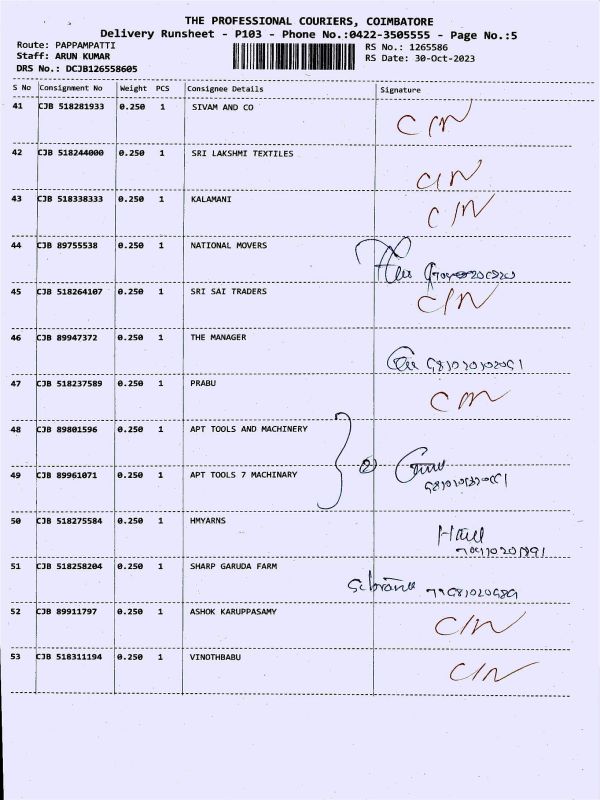 THE PROFESSIONAL COURIERS, COIMBATORE
Delivery Runsheet - P103 - Phone No.:0422-3505555 - Page No.:5
Route: PAPPAMPATTI RS No.: 1265586
Staff: ARUN KUMAR RS Date: 30-Oct-2023
DRS No.: DCJB126558605
S No Consignment No Weight PCS Consignee Details Signature
41 CJB 518281933 0.250 1 SIVAM AND CO C/N
42 CJB 518244000 0.250 1 SRI LAKSHMI TEXTILES C/N
43 CJB 518338333 0.250 1 KALAMANI C/N
44 CJB 89755538 0.250 1 NATIONAL MOVERS
45 CJB 518264107 0.250 1 SRI SAI TRADERS C/N
46 CJB 89947372 0.250 1 THE MANAGER
47 CJB 518237589 0.250 1 PRABU C/N
48 CJB 89801596 0.250 1 APT TOOLS AND MACHINERY
49 CJB 89961071 0.250 1 APT TOOLS 7 MACHINARY
50 CJB 518275584 0.250 1 HMYARNS
51 CJB 518258204 0.250 1 SHARP GARUDA FARM
52 CJB 89911797 0.250 1 ASHOK KARUPPASAMY C/N
53 CJB 518311194 0.250 1 VINOTHBABU C/N